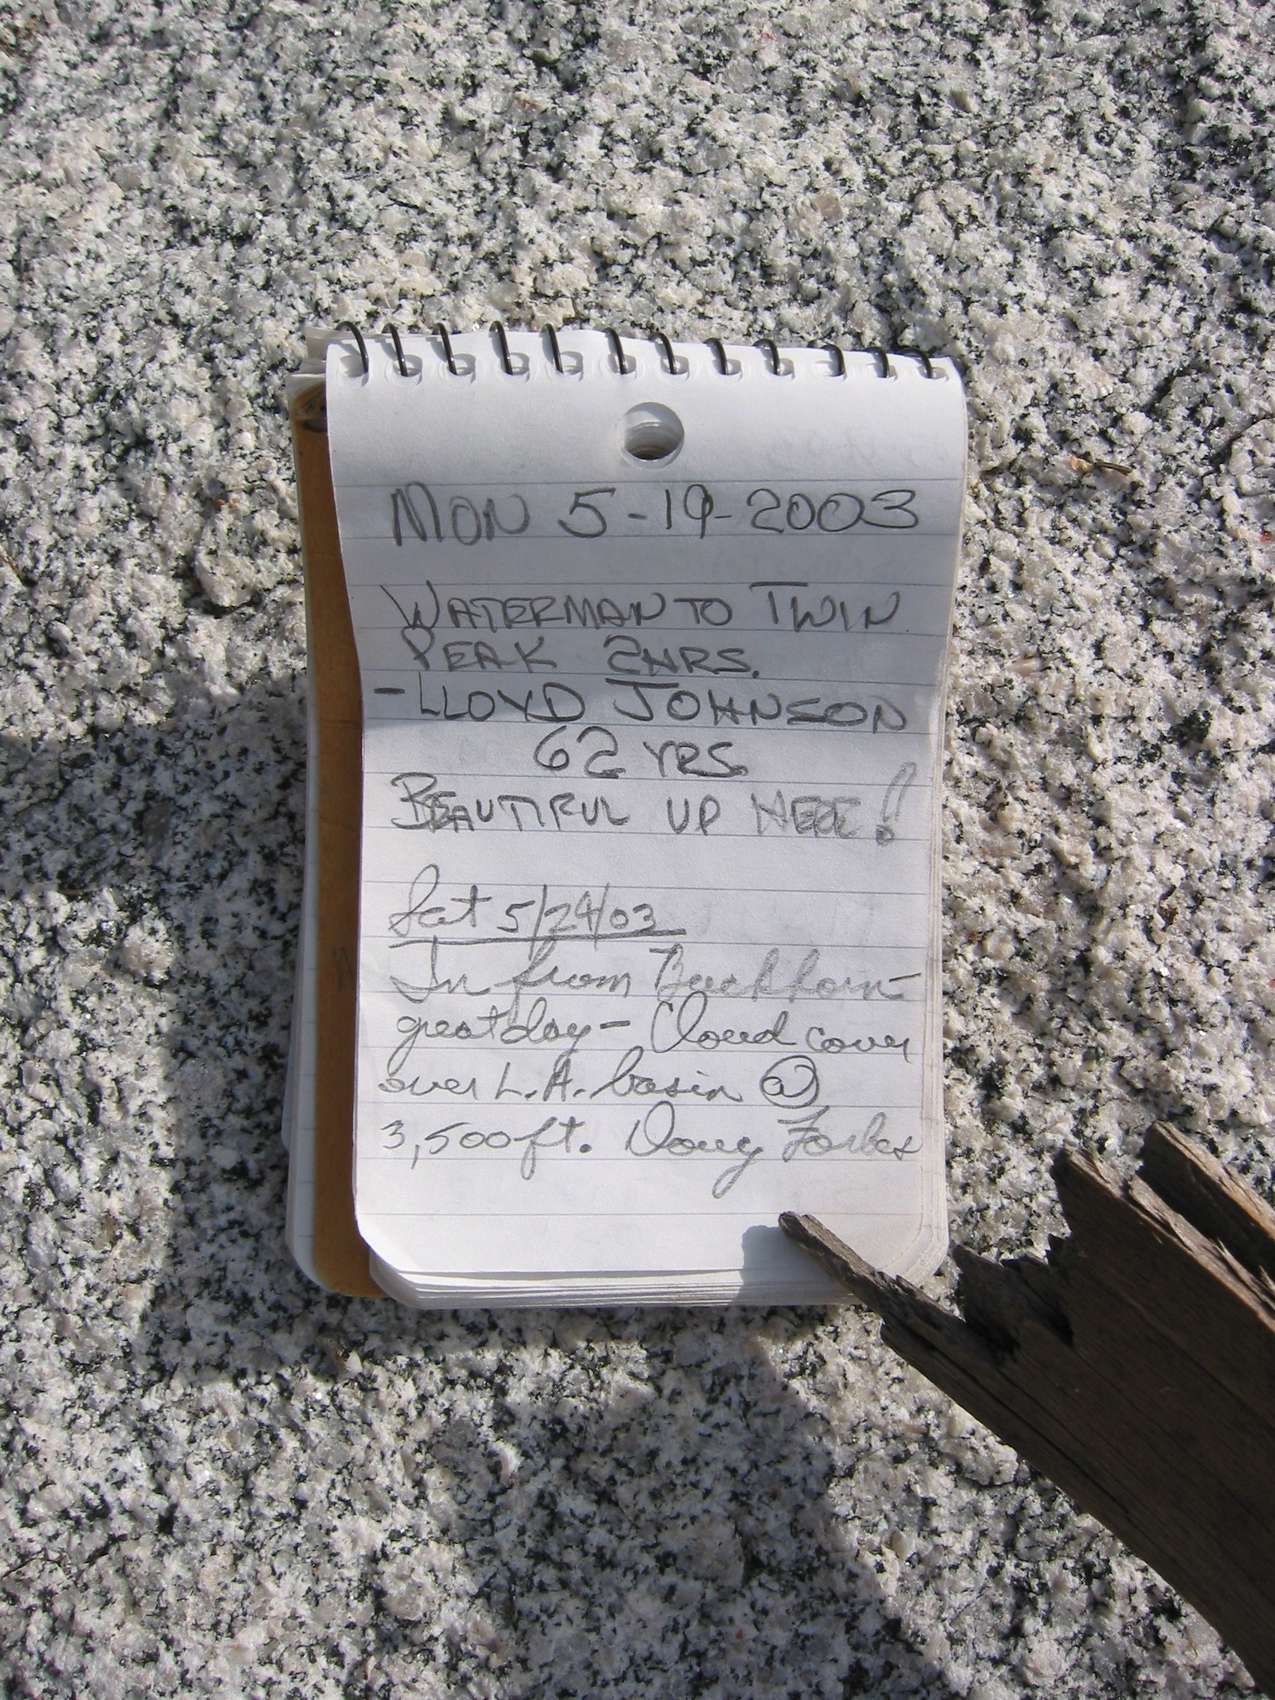 MON 5-19-2003
WATERMAN TO TWIN
PEAK 2HRS.
-LLOYD JOHNSON
62 YRS.
BEAUTIFUL UP HERE!
Sat 5/24/03
In from Buckhorn-
great day - Cloud cover
over L.A. basin @
3,500 ft. Doug Forbes